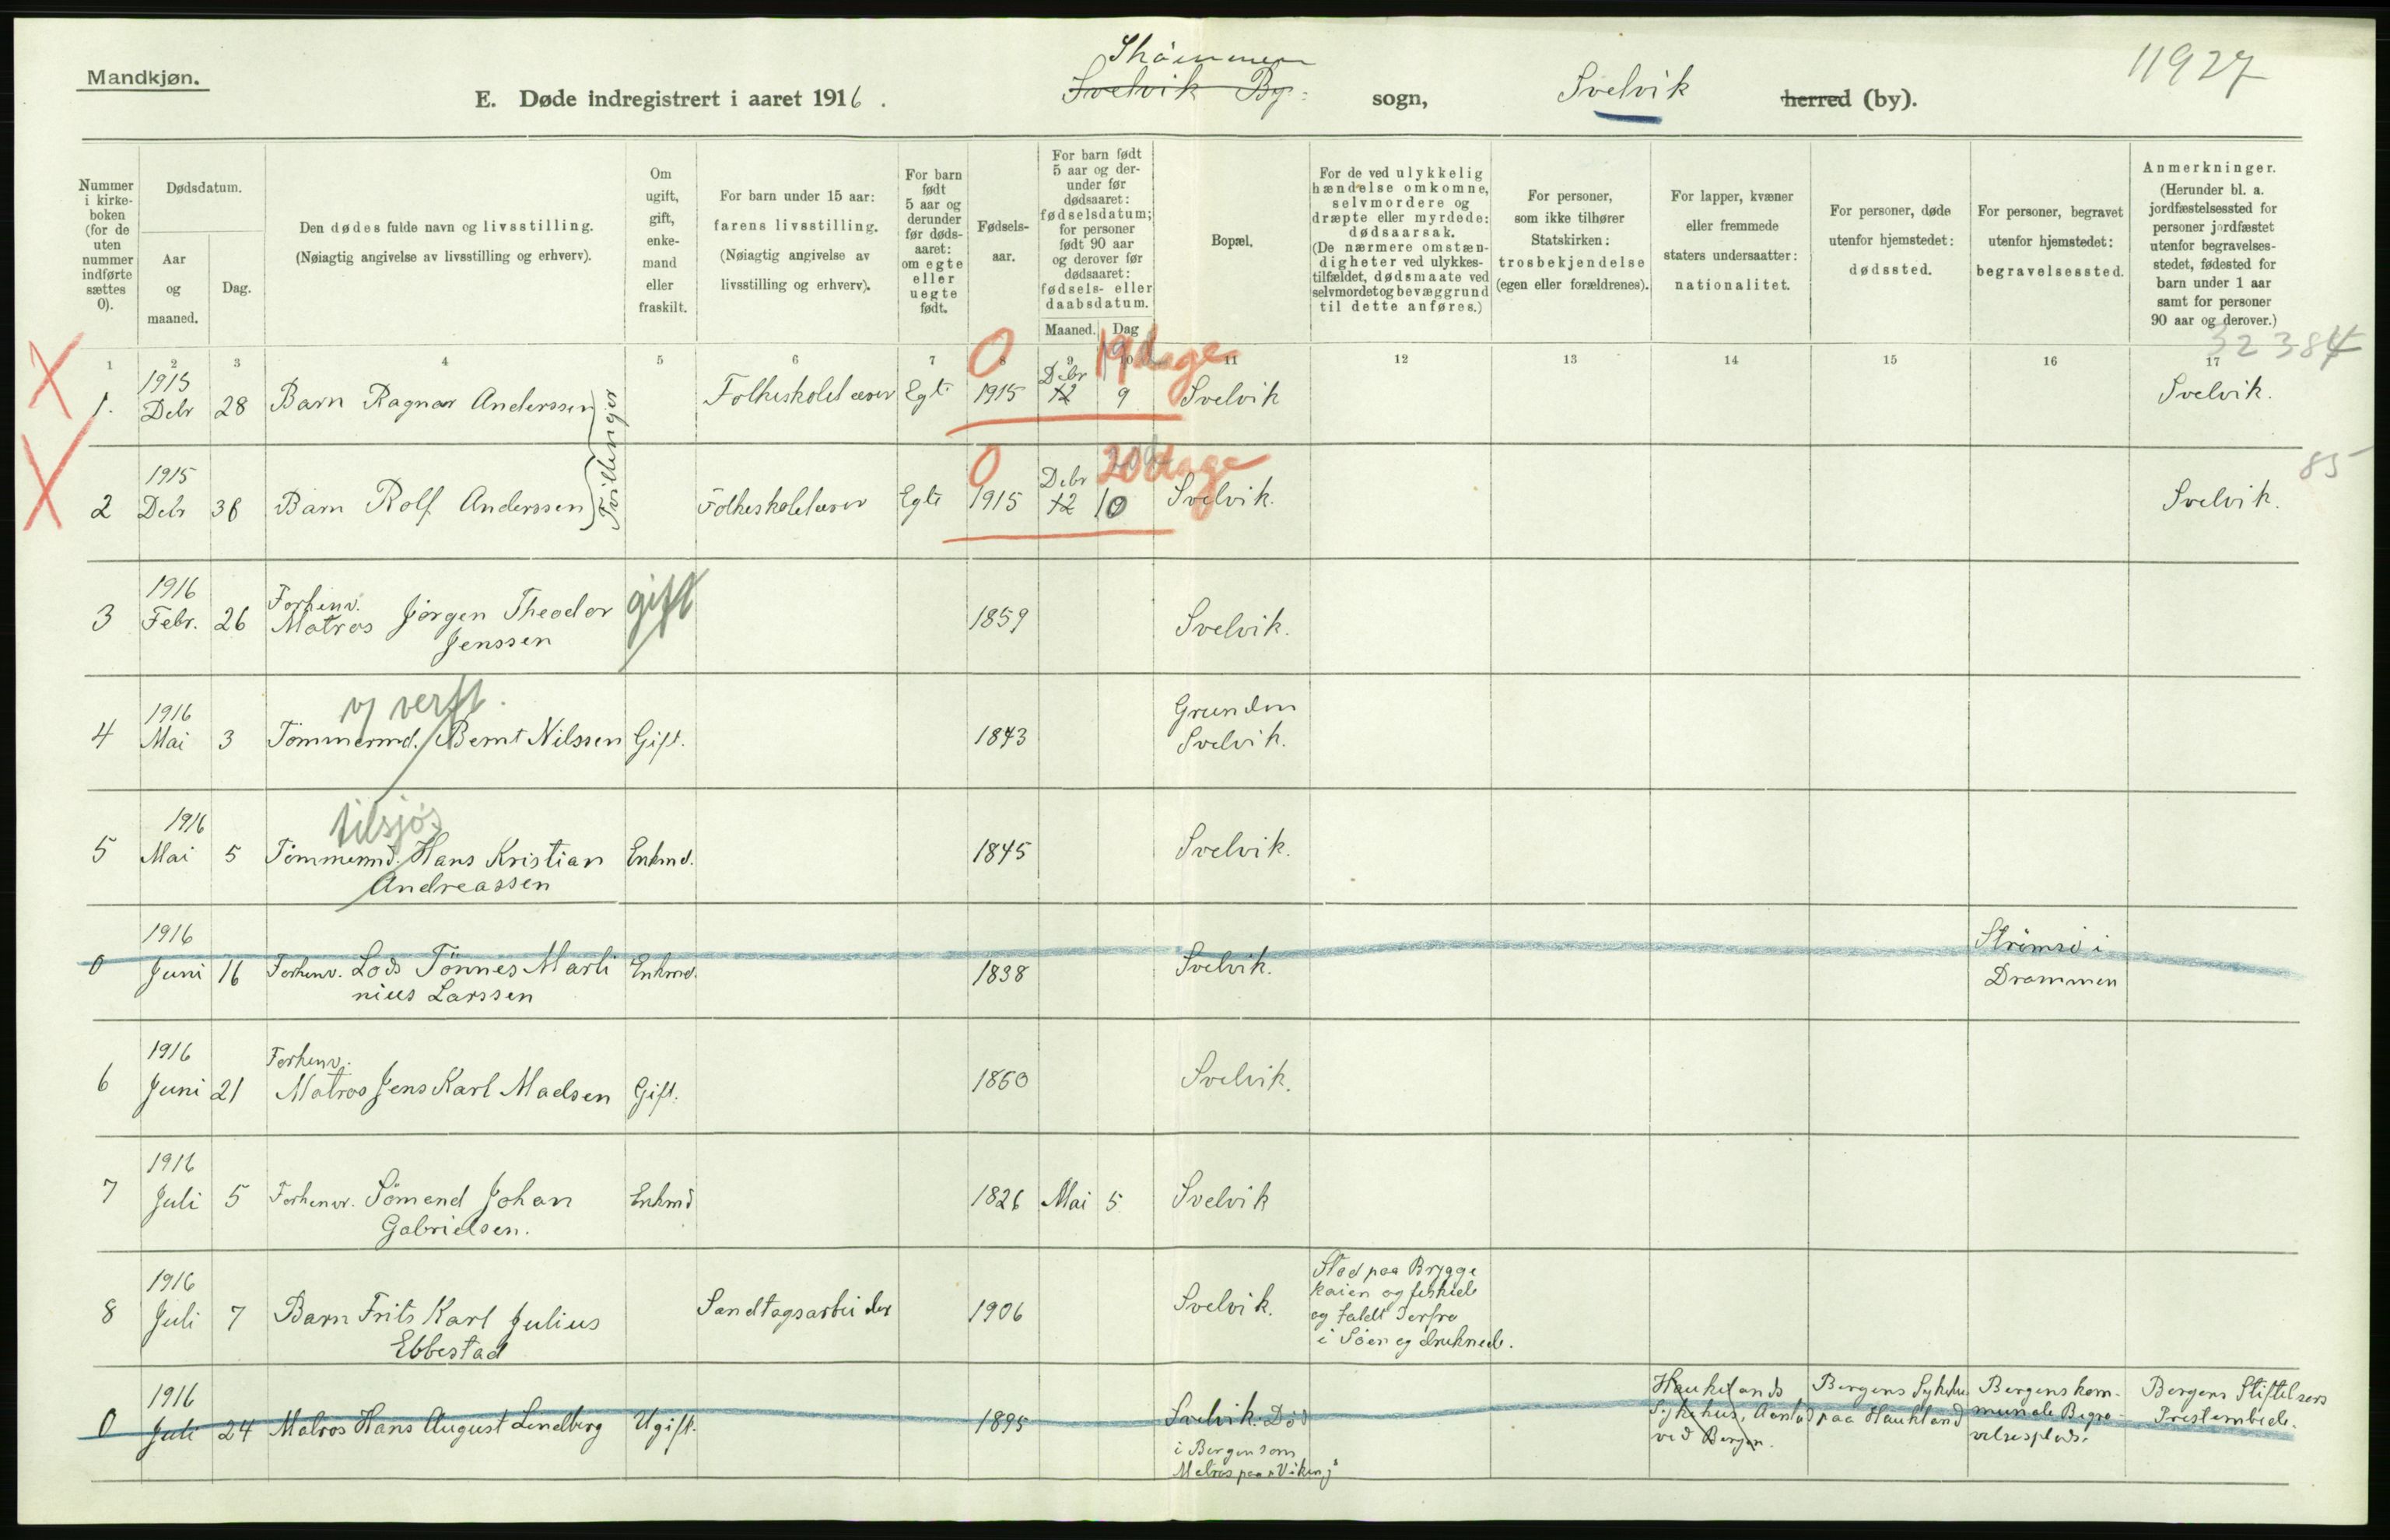 Mandkjøn.
E. Døde indregistrert i aaret 1916.
Svelvik By
sogn,
Svelvik
herred (by).
11927
Nummer i kirkeboken (for de uten nummer indførte sættes 0).
Dødsdatum.
Aar og maaned.
Dag.
Den dødes fulde navn og livsstilling.
(Nøiagtig angivelse av livsstilling og erhverv).
Om ugift, gift, enkemand eller fraskilt.
For barn under 15 aar:
farens livsstilling.
(Nøiagtig angivelse av livsstilling og erhverv).
For barn født 5 aar og derunder før dødsaaret: om egte eller uegte født.
Fødselsaar.
For barn født 5 aar og derunder før dødsaaret: fødselsdatum; for personer født 90 aar og derover før dødsaaret: fødsels- eller daabsdatum.
Maaned.
Dag
Bopæl.
For de ved ulykkelig hændelse omkomne, selvmordere og dræpte eller myrdede: dødsaarsak.
(De nærmere omstændigheter ved ulykkestilfældet, dødsmaate ved selvmordet og bevæggrund til dette anføres.)
For personer, som ikke tilhører Statskirken: trosbekjendelse (egen eller forældrenes).
For lapper, kvæner eller fremmede staters undersaatter: nationalitet.
For personer, døde utenfor hjemstedet: dødssted.
For personer, begravet utenfor hjemstedet: begravelsessted.
Anmerkninger.
(Herunder bl. a. jordfæstelsessted for personer jordfæstet utenfor begravelsesstedet, fødested for barn under 1 aar samt for personer 90 aar og derover.)
32384
1 2 3 4 5 6 7 8 9 10 11 12 13 14 15 16 17
1. 1915 Debr 28 Barn Ragnar Anderssen Folkeskolelærer Egte 0 1915 Debr 12 9 19 dage Svelvik Svelvik.
Tvillinger
85
2 1915 Debr 30 Barn Rolf Anderssen Folkeskolelærer Egte 0 1915 Debr 12 10 20 dage Svelvik. Svelvik.
3 1916 Febr. 26 Forhenv. Matros Jörgen Theodor Jenssen gift 1859 Svelvik.
4 1916 Mai 3 Tömmermd. verft Bernt Nilssen Gift. 1843 Grunden Svelvik.
5 1916 Mai 5 Tömmermd. tilsjøs Hans Kristian Andreassen Enkmd. 1845 Svelvik.
0 1916 Juni 16 Forhenv. Lods Tönnes Martinius Larssen Enkmd. 1838 Svelvik. Strömsö i Drammen
6 1916 Juni 21 Forhenv. Matros Jens Karl Madsen Gift. 1860 Svelvik.
7 1916 Juli 5 Forhenv. Sömand Johan Gabrielsen. Enkmd 1826 Mai 5 Svelvik
8 1916 Juli 7 Barn Frits Karl Julius Ebbestad Sandtagsarbeider 1906 Svelvik.
Stod paa Brygge
kaien og fiskede
og faldt derfra
i Söen og druknede.
0 1916 Juli 24 Matros Hans August Lindberg Ugift. 1895
Svelvik. Död
i Bergen som
Matros paa "Viking"
Haukelands
Sykehus,
ved Bergen.
Bergens Sykehus
paa Haukland
Bergens kommunale Begravelsesplads.
Bergens Stiftelsers
Prestembede.